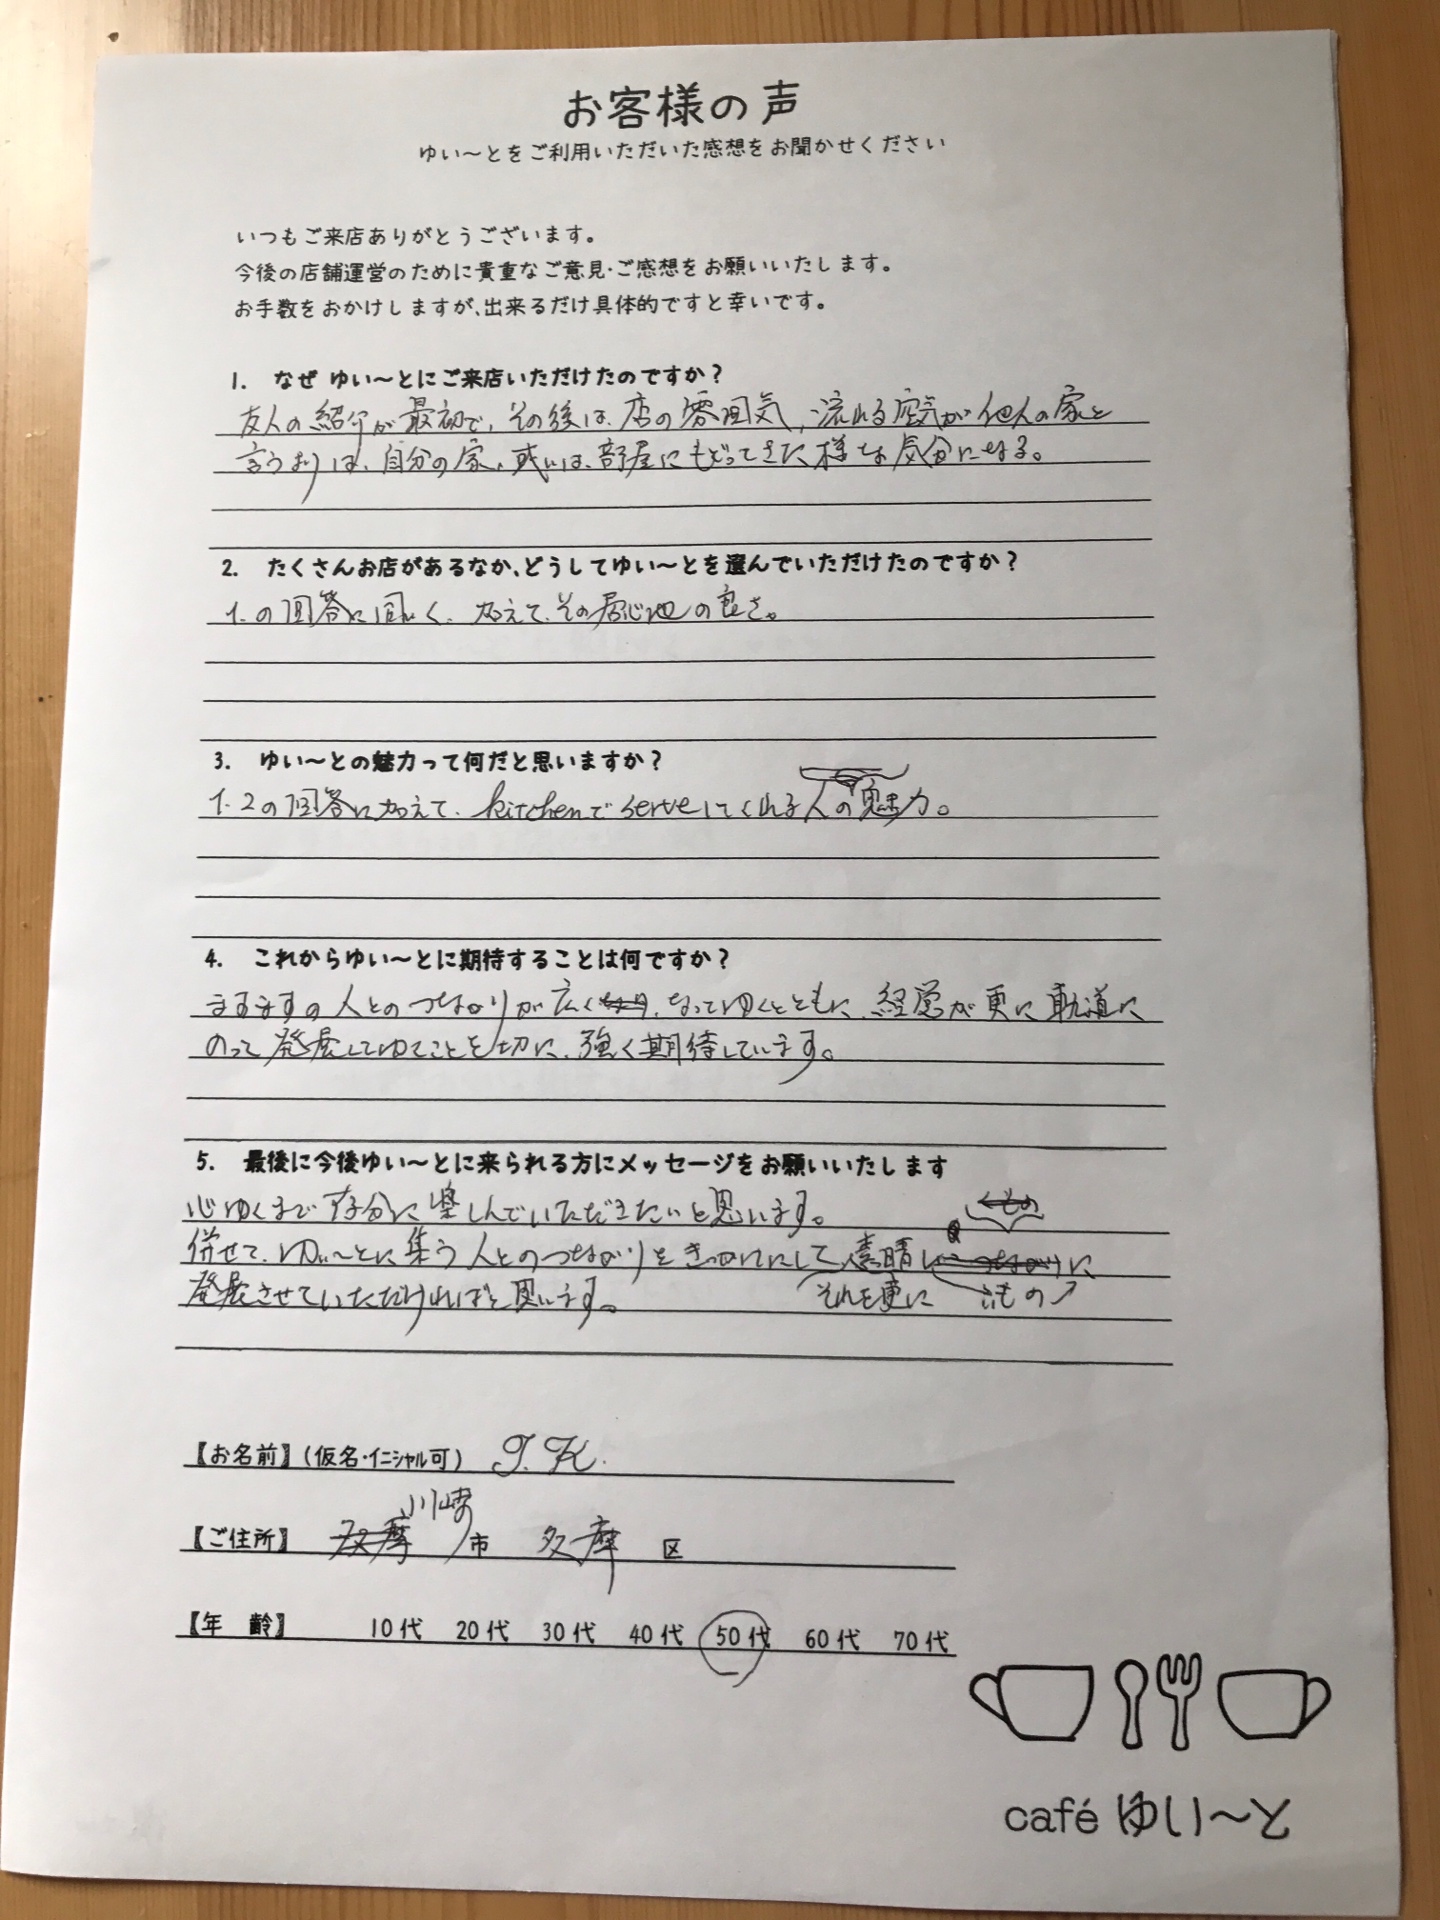 お客様の声
ゆい〜とをご利用いただいた感想をお聞かせください
いつもご来店ありがとうございます。
今後の店舗運営のために貴重なご意見・ご感想をお願いいたします。
お手数をおかけしますが、出来るだけ具体的ですと幸いです。
1. なぜ ゆい〜とにご来店いただけたのですか？
友人の紹介が最初で、その後は、店の雰囲気、流れる空気が他人の家と
言うよりは、自分の家、或いは、部屋にもどってきた様な気分になる。
2. たくさんお店があるなか、どうしてゆい〜とを選んでいただけたのですか？
1.の回答に同じく、加えて、その居心地の良さ。
3. ゆい〜との魅力って何だと思いますか？
1.2の回答に加えて、kitchenでserveしてくれる人の魅力。
4. これからゆい〜とに期待することは何ですか？
ますますの人とのつながりが広くなってゆくとともに、経営が更に軌道に
のって発展してゆくことを切に、強く期待しています。
5. 最後に今後ゆい〜とに来られる方にメッセージをお願いいたします
心ゆくまで存分に楽しんでいただきたいと思います。
併せて、ゆい〜とに集う人とのつながりをきっかけにしてそれを更に素晴しいものに
発展させていただければと思います。
【お名前】(仮名・イニシャル可) T.K.
【ご住所】 川崎市 多摩区
【年 齢】 10代 20代 30代 40代 50代 60代 70代
café ゆい〜と